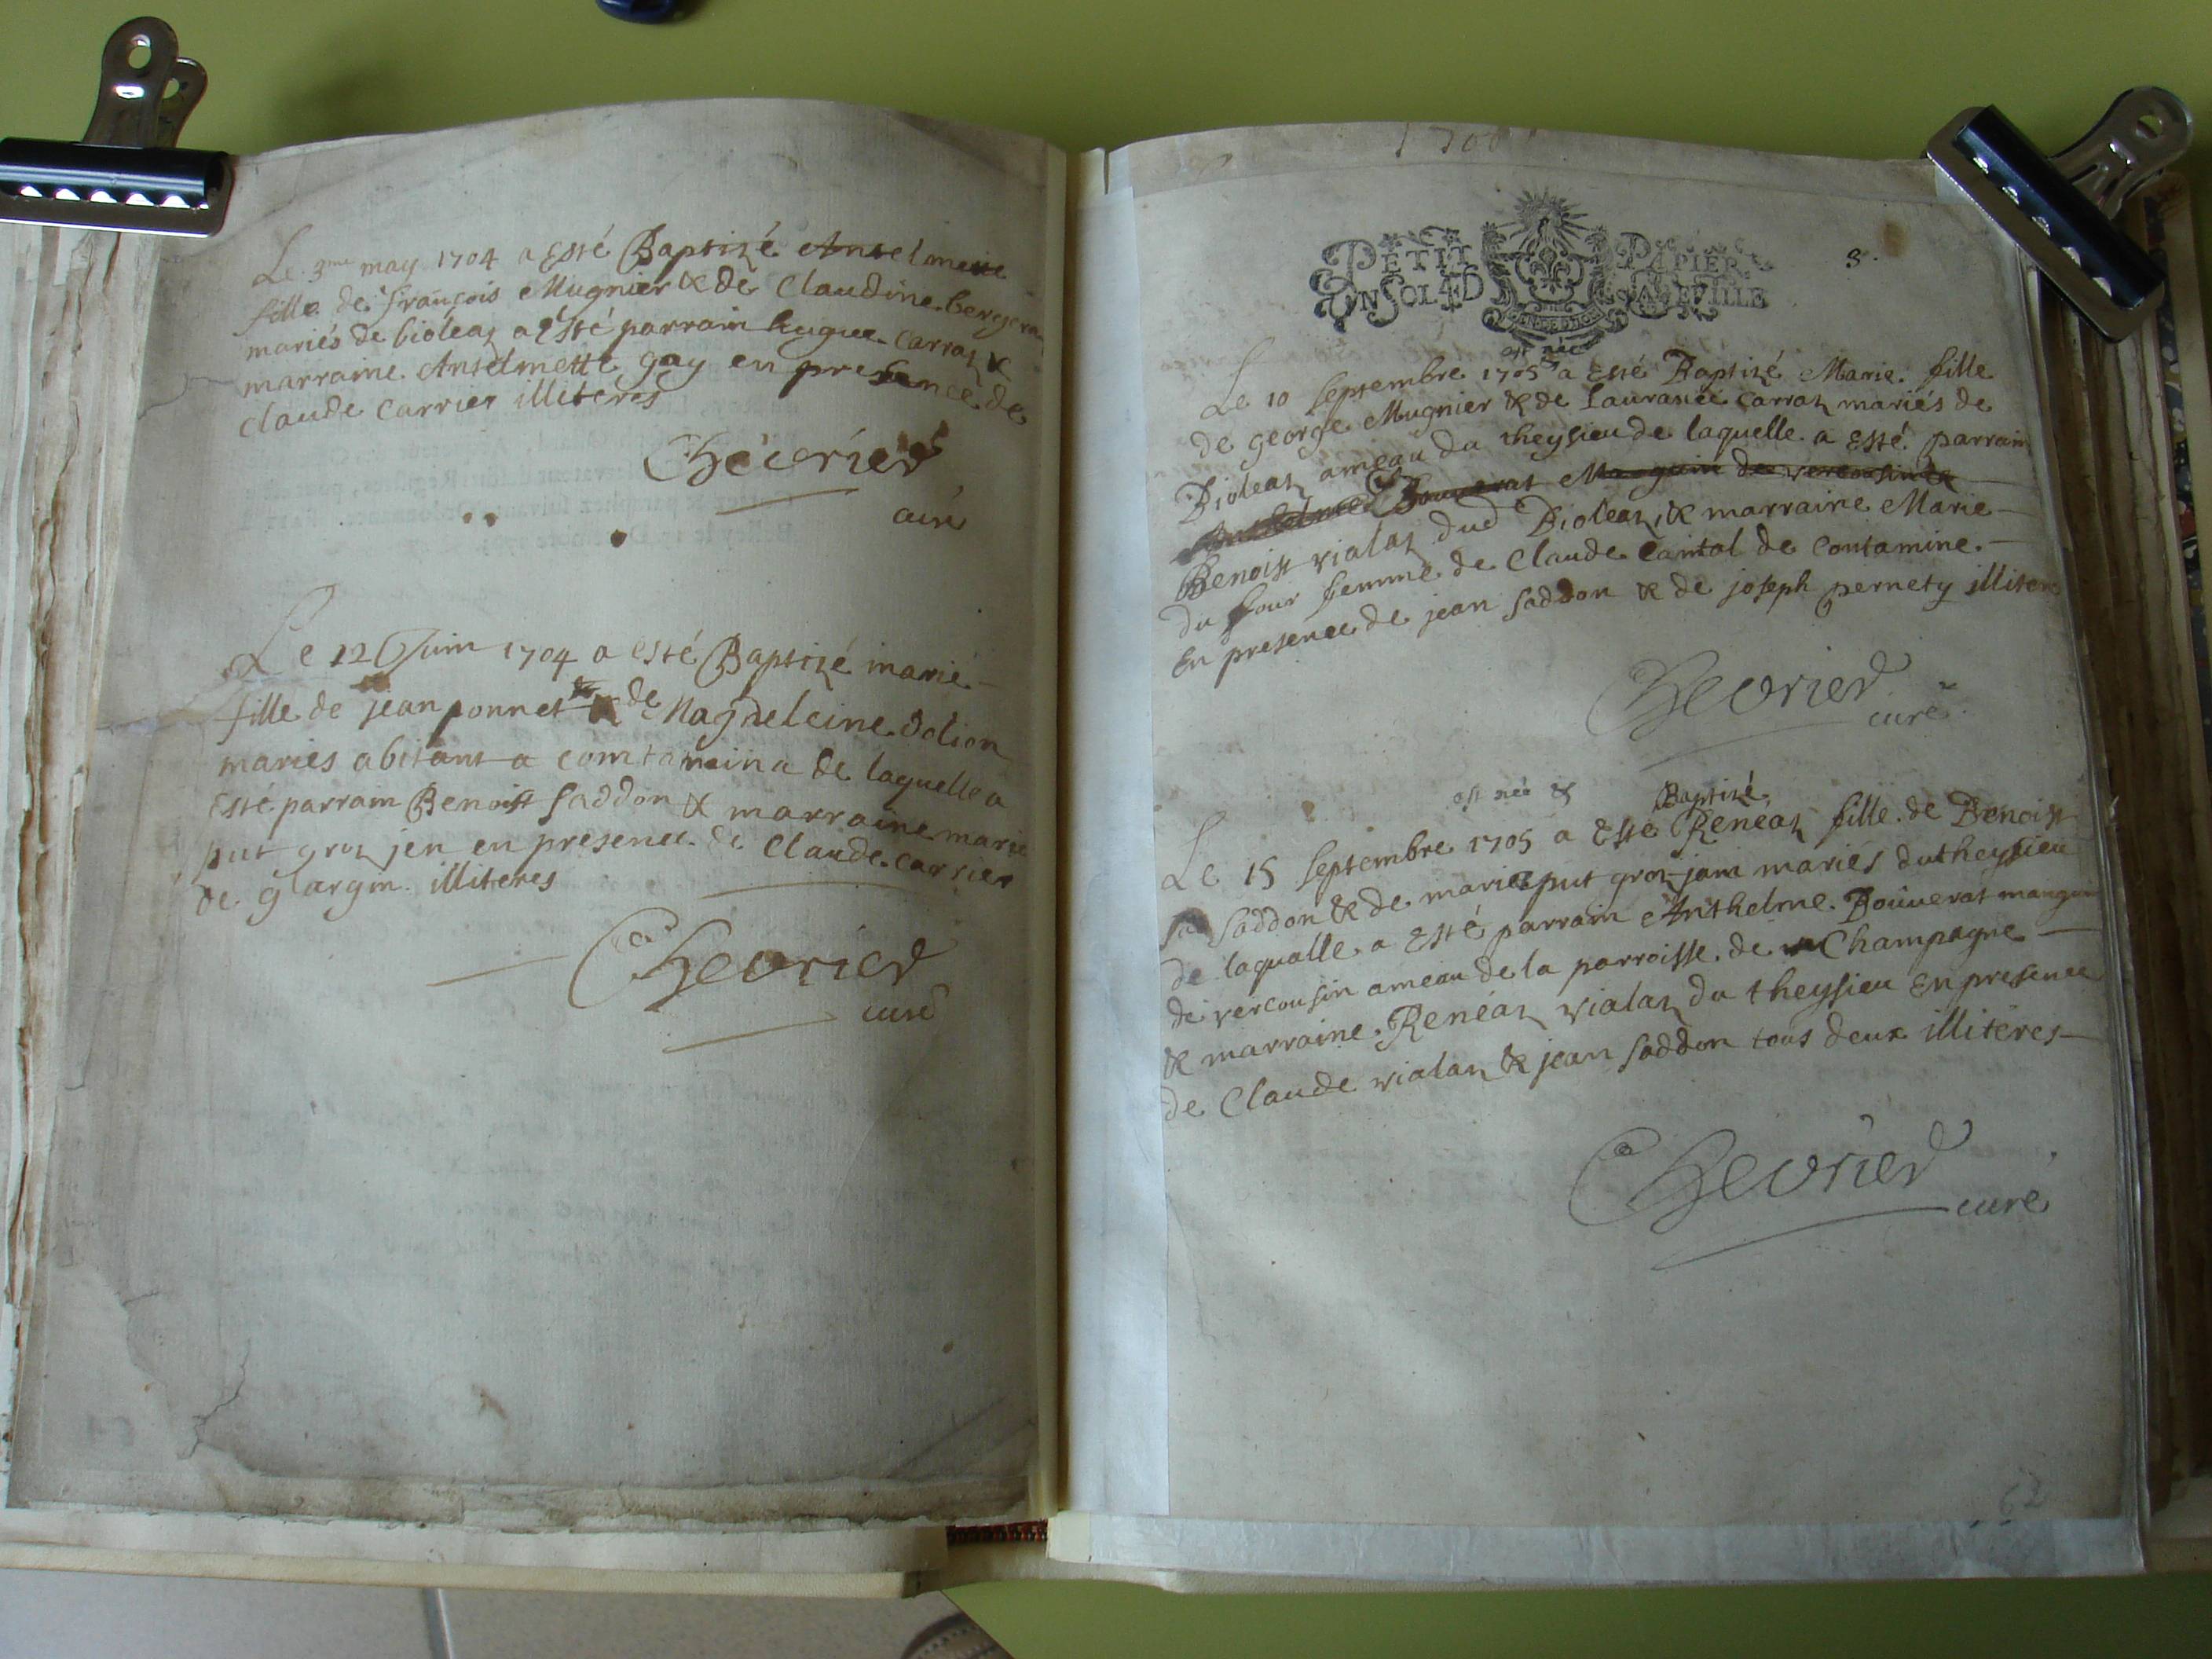 Le 3me may 1704 a Esté Baptizé
fille de françois Mugnier & de Claudine
mariés de bioleaz a Esté parrain hugue Carraz &
marraine Anselmette gay en presence de
Claude Carrier illiteres
Chevrier
curé
Le 12 Juin 1704 a esté Baptizé marie
fille de jean ponnet de Magdeleine dolion
mariés abitant a comtamina de laquelle a
Esté parrain Benoist Saddon & marraine marie
put groz jen en presence de Claude Carrier
de illiteres
Chevrier
curé
1706
PETIT PAPIER
UN SOL 4D LA FEUILLE
3.
est née
Le 10 Septembre 1705 a Esté Baptizé Marie fille
de george Mugnier & de Laurance Carraz mariés de
Bioleaz ameau du theysieu de laquelle a Esté parrain
Anthelme Bouverat Manguin de vercousin
Benoist vialaz dud Bioleaz, & marraine Marie
du four femme de Claude Cantal de Contamine.
En presence de jean Saddon & de joseph pernety illiteres
Chevrier
curé
est née & Baptizé
Le 15 Septembre 1705 a Esté Reneaz fille de Benoist
Saddon & de marie put groz jam mariés du theysieu
de laqualle a Esté parrain Anthelme Bouverat manguin
de vercousin ameau de la parroisse de Champagne
& marraine Reneaz vialaz du theysieu En presence
de Claude vialaz & jean Saddon tous deux illiteres
Chevrier
curé
62